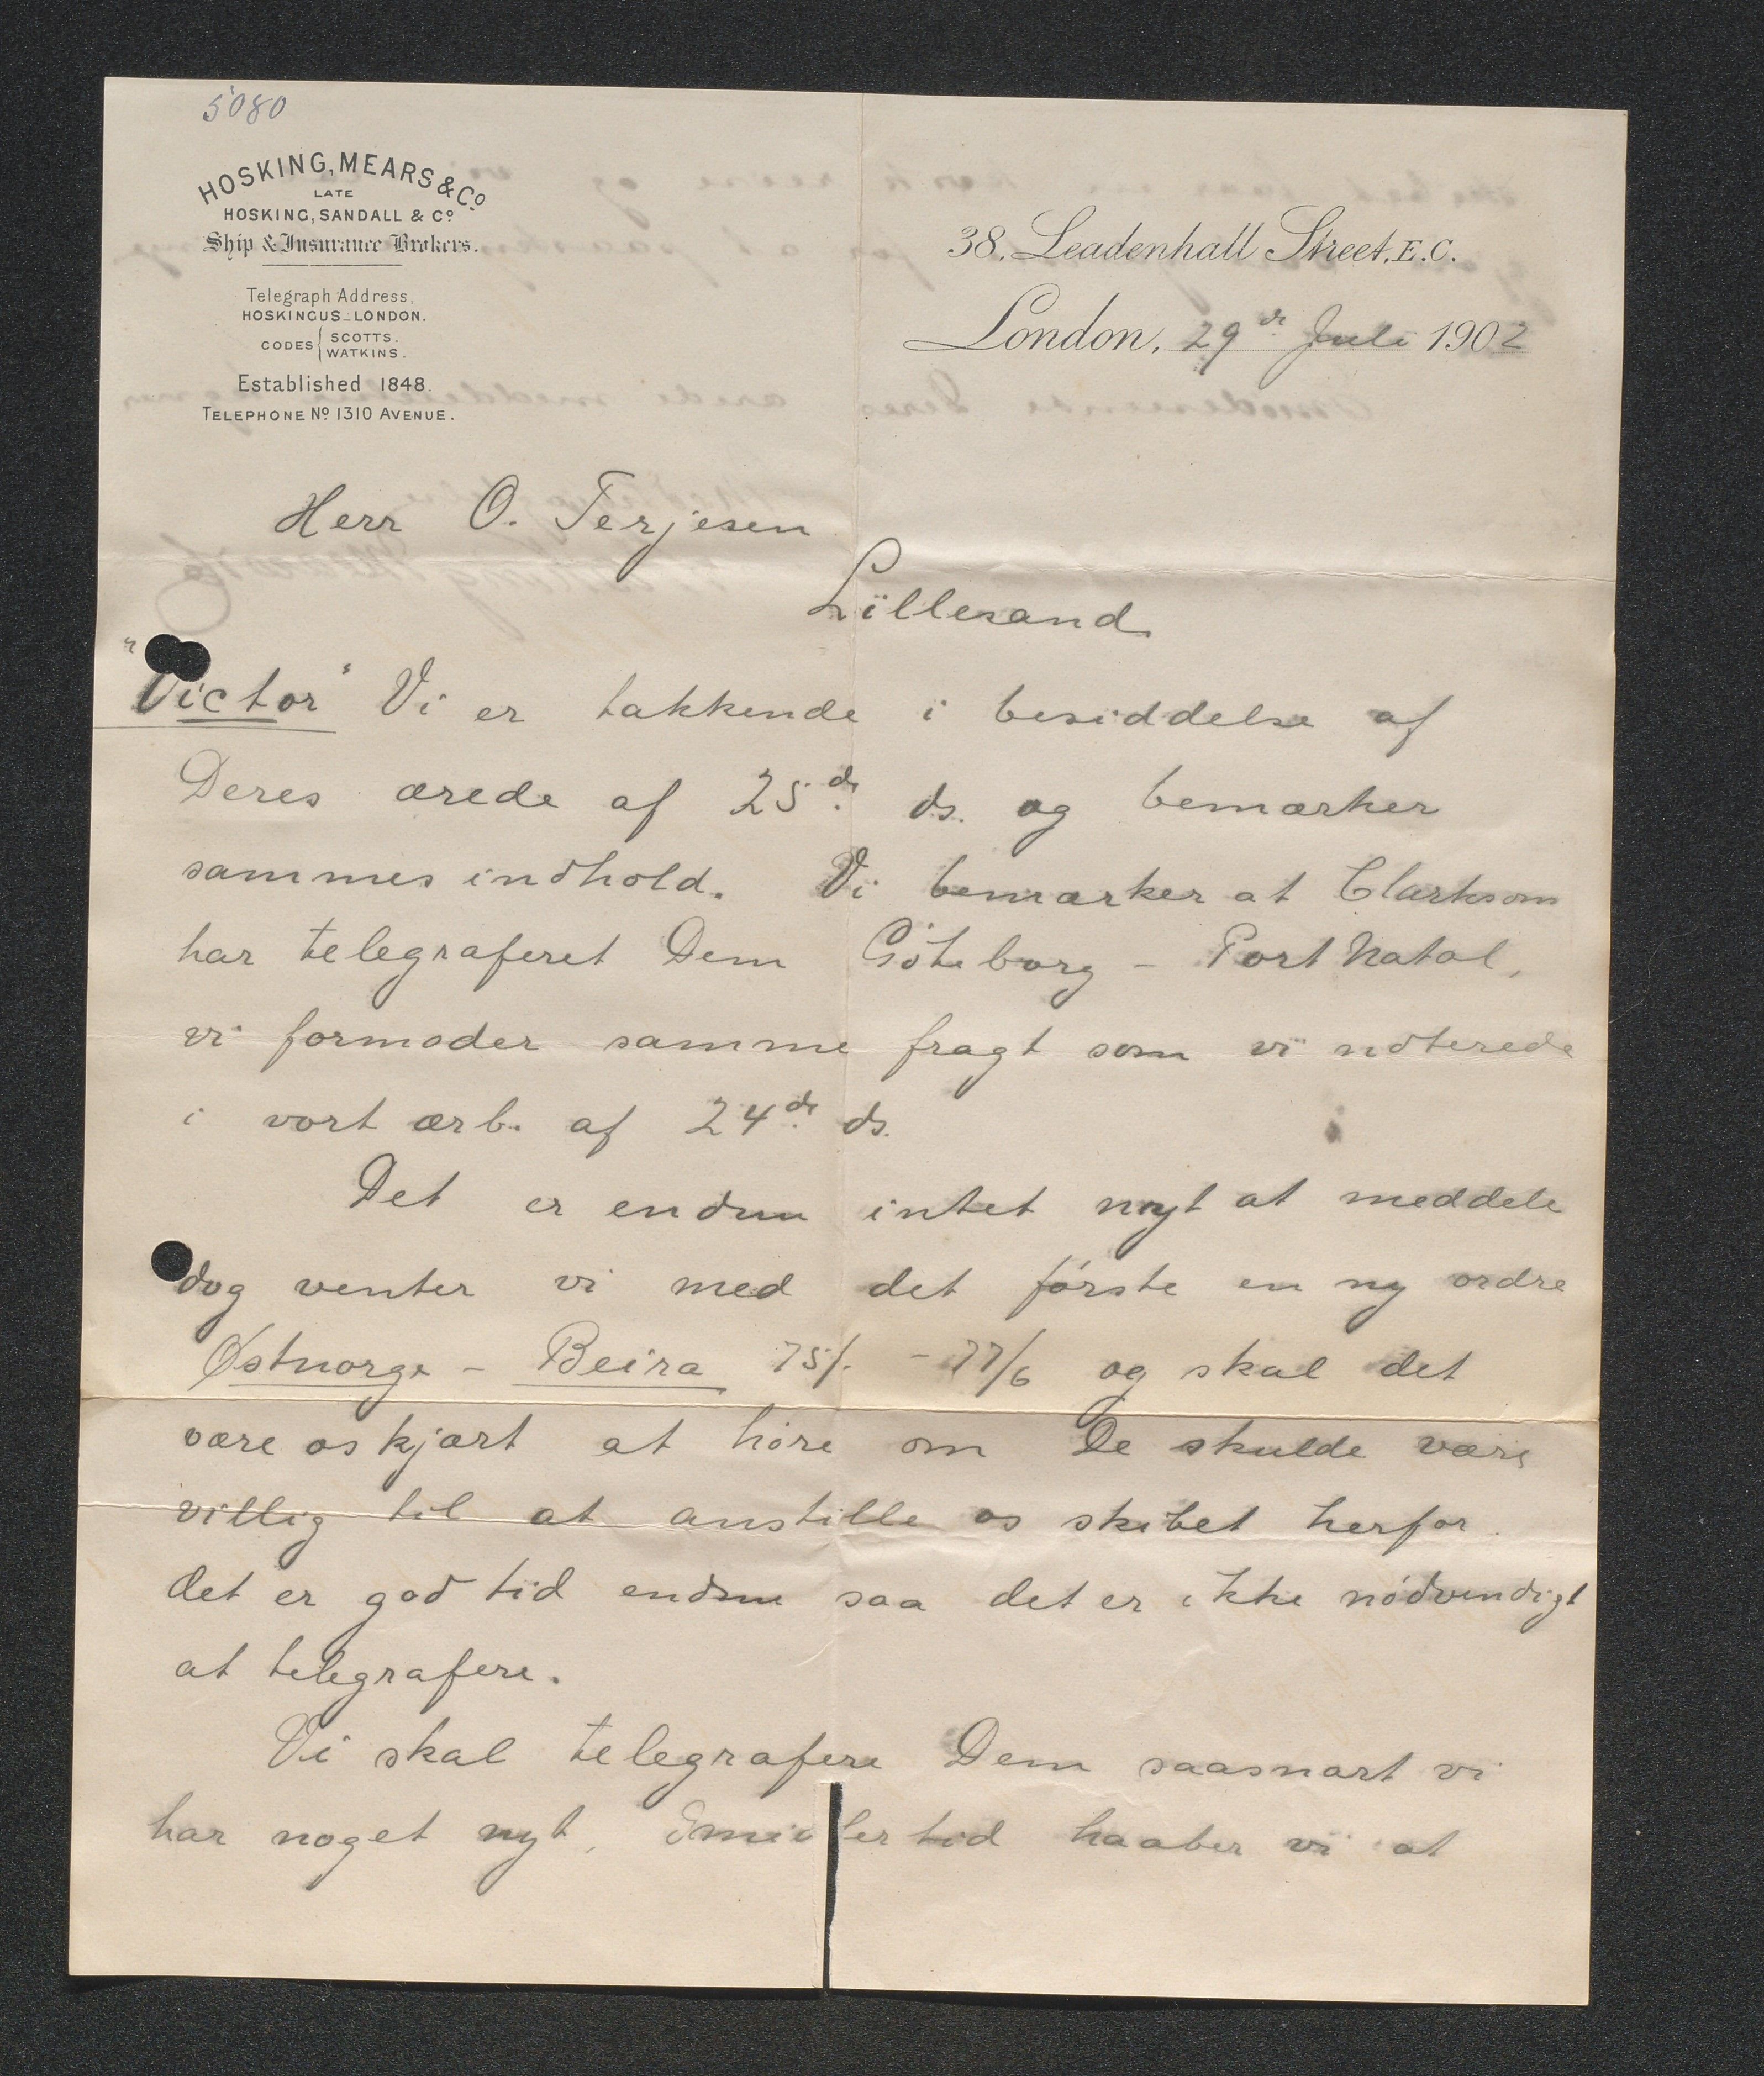 5080
HOSKING, MEARS & Co.
LATE
HOSKING, SANDALL & Co.
Ship & Insurance Brokers.
Telegraph Address,
HOSKINGUS_LONDON.
CODES { SCOTTS.
WATKINS.
Established 1848.
TELEPHONE No. 1310 AVENUE.
38, Leadenhall Street, E.C.
London, 29de Juli 1902
Herr O. Terjesen
Lillesand
"Victor" Vi er takkende i besiddelse af
Deres ærede af 25de ds. og bemærker
sammes indhold. Vi bemærker at Clarkson
har telegraferet Dem Göteborg - Port Natal,
vi formoder samme fragt som vi noterede
i vort ærb. af 24de ds.
Det er endnu intet nyt at meddele
dog venter vi med det første en ny ordre
Østnorge - Beira 75/- - 77/6 og skal det
være os kjært at höre om De skulde være
villig til at anstille os skibet herfor.
det er god tid endnu saa det er ikke nödvendigt
at telegrafere.
Vi skal telegrafere Dem saasnart vi
har noget nyt, Imidlertid haaber vi at